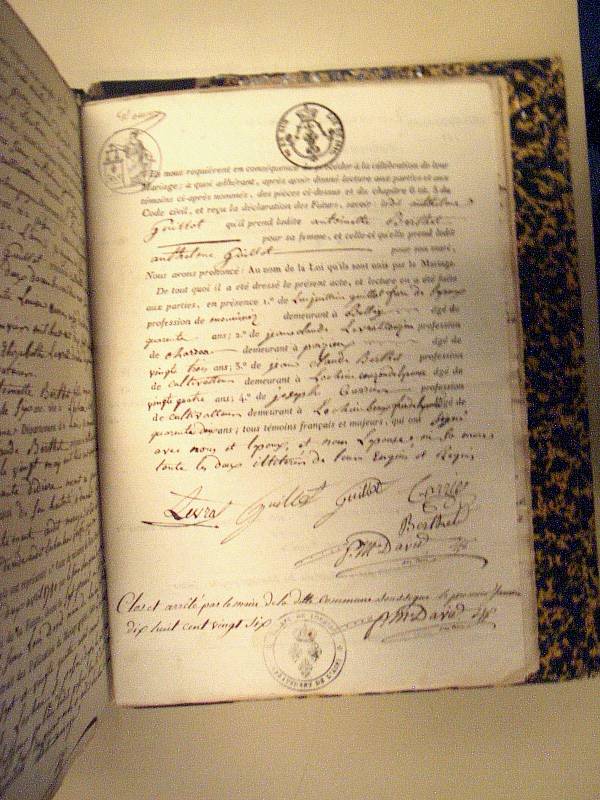 Ils nous requièrent en conséquence de procéder à la célébration de leur
Mariage: à quoi adhérant, après avoir donné lecture aux parties et aux
témoins ci-après nommés, des pièces ci-dessus et du chapitre 6 tit. 5 du
Code civil, et reçu la déclaration des Futurs, savoir ledit anthelme
Guillot qu'il prend ladite antoinette Berthet
pour sa femme, et celle-ci qu'elle prend ledit
anthelme Guillot pour son mari,
Nous avons prononcé: Au nom de la Loi qu'ils sont unis par le Mariage.
De tout quoi il a été dressé le présent acte, et lecture en a été faite
aux parties, en présence 1.º de guillot frère de l'époux
profession de demeurant à Belley âgé de
quarante ans; 2.º de jean claude Levrat profession
de charon demeurant à âgé de
vingt trois ans; 3.º de jean Claude Berthet profession
de cultivateur demeurant à Lochieu âgé de
vingt quatre ans; 4.º de joseph profession
de cultivateur demeurant à Lochieu âgé de
quarante ans; tous témoins français et majeurs, qui ont signé
avec nous et l'époux, et non l'épouse, ni la mère
toute les deux illitérées de leurs enquis et requis
Levrat Guillot Guillot
Berthet
P. M. David
Clos et arrêté par le maire de la dite commune soussigné le premier janvier
dix huit cent vingt six P. M. David